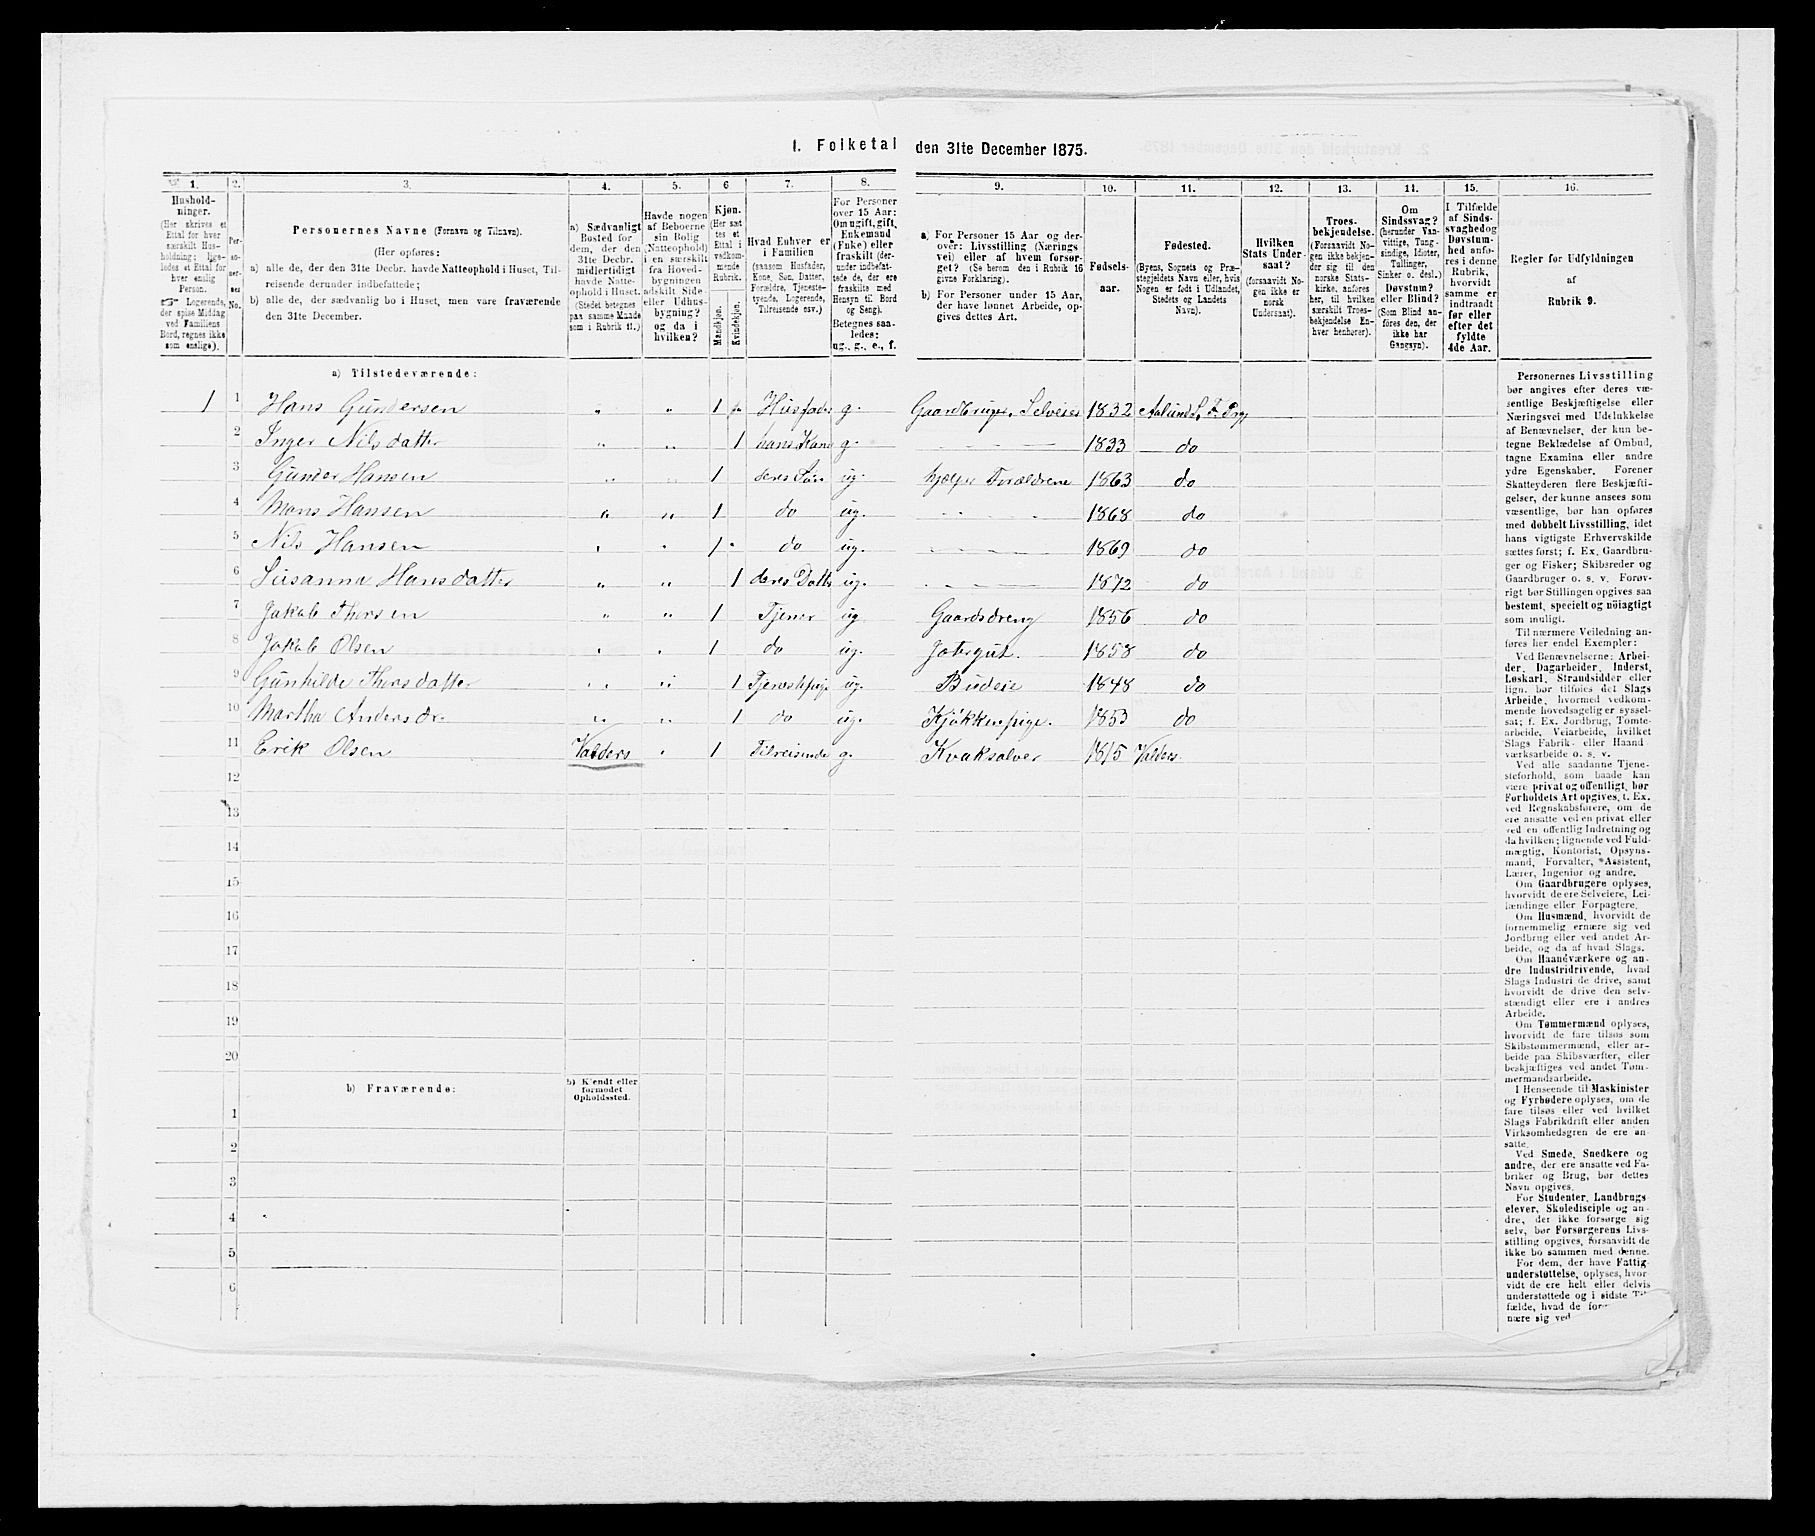 1. Folketal den 31te December 1875.
1. 2. 3. 4. 5. 6 7. 8. 9. 10. 11. 12. 13. 14. 15. 16.
Hushold-
ninger.
(Her skrives et
Ettal for hver
særskilt Hus-
holdning; lige-
ledes et Ettal for
hver enslig
Person.
☞ Logerende,
der spise Middag
ved Familiens
Bord, regnes ikke
som enslige).
Per-
so-
ner-
nes
No.
Personernes Navne (Fornavn og Tilnavn).
(Her opføres:
a) alle de, der den 31te Decbr. havde Natteophold i Huset, Til-
reisende derunder indbefattede;
b) alle de, der sædvanlig bo i Huset, men vare fraværende
den 31te December.
a) Sædvanligt
Bosted for
dem, der den
31te Decbr.
midlertidigt
havde Natte-
ophold i Huset.
(Stedet betegnes
paa samme Maade
som i Rubrik 11.)
Havde nogen
af Beboerne
sin Bolig
(Natteophold)
i en særskilt
fra Hoved-
bygningen
adskilt Side-
eller Udhus-
bygning?
og da i
hvilken?
Kjøn.
(Her sæt-
tes et
Ettal i
vedkom-
mende
Rubrik.
Mandkjøn.
Kvindekjøn.
Hvad Enhver er
i Familien
(saasom Husfader,
Kone, Søn, Datter,
Forældre, Tjeneste-
tyende, Logerende,
Tilreisende osv.)
For Personer
over 15 Aar:
Om ugift, gift,
Enkemand
(Enke) eller
fraskilt (der-
under indbefat-
tede de, der ere
fraskilte med
Hensyn til Bord
og Seng).
Betegnes saa-
ledes:
ug., g., e., f.
a) For Personer 15 Aar og der-
over: Livsstilling (Nærings-
vei) eller af hvem forsør-
get? (Se herom den i Rubrik 16
givne Forklaring).
b) For Personer under 15 Aar,
der have lønnet Arbeide, op-
gives dettes Art.
Fødsels-
aar.
Fødested.
(Byens, Sognets og Præ-
stegjeldets Navn eller, hvis
Nogen er født i Udlandet,
Stedets og Landets
Navn).
Hvilken
Stats Under-
saat?
(forsaavidt No-
gen ikke er
norsk
Undersaat).
Troes-
bekjendelse.
(Forsaavidt No-
gen ikke bekjen-
der sig til den
norske Stats-
kirke, anføres
her, til hvilken
særskilt Troes-
bekjendelse En-
hver henhører).
Om
Sindssvag?
(herunder Van-
vittige, Tung-
sindige, Idioter,
Tullinger,
Sinker o. desl.)
Døvstum?
eller Blind?
(Som Blind an-
føres den, der
ikke har
Gangsyn).
I Tilfælde
af Sinds-
svaghed og
Døvstum-
hed anfø-
res i denne
Rubrik,
hvorvidt
samme er
indtraadt
før eller
efter det
fyldte
4de Aar.
Regler for Udfyldningen
af
Rubrik 9.
a) Tilstedeværende:
1 1 Hans Gundersen " " 1 Husfader g. Gaardbruger, Selveier 1832
2 Inger Nilsdatter " " 1 hans Kone g. 1833 do
3 Gunder Hansen " " 1 deres Søn ug. hjelper Forældrene 1863 do
4 Mons Hansen " " 1 do ug. 1868 do
5 Nils Hansen " " 1 do ug. 1869 do
6 Susanna Hansdatter " " 1 deres Datter ug. 1872 do
7 Jakob Thorsen " " 1 Tjener ug Gaardsdreng 1856 do
8 Jakob Olsen " " 1 do ug. Jætergut. 1858 do
9 Gunhilde Thorsdatter " " 1 Tjenestepige ug. Budeie 1848 do
10 Martha Andersdr. " " 1 do ug. Kjökkenpige. 1853 do
11 Erik Olsen Valders " 1 Tilreisende g. Kvaksalver 1815 Valders.
12
13
14
15
16
17
18
19
20
b) Fraværende:
b) Kjendt eller
formodet
Opholdssted.
1
2
3
4
5
6
Personernes Livsstilling
bør angives efter deres væ-
sentlige Beskjæftigelse eller
Næringsvei med Udelukkelse
af Benævnelser, der kun be-
tegne Beklædelse af Ombud,
tagne Examina eller andre
ydre Egenskaber. Forener
Skatteyderen flere Beskjæfti-
gelser, der kunne ansees som
væsentlige, bør han opføres
med dobbelt Livsstilling, idet
hans vigtigste Erhvervskilde
sættes først; f. Ex. Gaardbru-
ger og Fisker; Skibsreder og
Gaardbruger o. s. v. Forøv-
rigt bør Stillingen opgives saa
bestemt, specielt og nöiagtigt
som muligt.
Til nærmere Veiledning an-
føres her endel Exempler:
Ved Benævnelserne: Arbei-
der, Dagarbeider, Inderst,
Løskarl, Strandsidder eller
lign. bør tilføies det Slags
Arbeide, hvormed vedkom-
mende hovedsagelig er syssel-
sat; f. Ex. Jordbrug, Tomte-
arbeide, Veiarbeide, hvilket
Slags Fabrik- eller Haand-
værksarbeide o. s. v.
Ved alle saadanne Tjene-
steforhold, som baade kan
være privat og offentligt, bør
Forholdets Art opgives, t. Ex.
ved Regnskabsførere, om de
ere ansatte ved en privat eller
ved en offentlig Indretning og
da hvilken; lignende ved Fuld-
mægtig, Kontorist, Opsyns-
mand, Forvalter, Assistent,
Lærer, Ingeniør og andre.
Om Gaardbrugere oplyses,
hvorvidt de ere Selveiere, Lei-
lændinge eller Forpagtere.
Om Husmænd, hvorvidt de
fornemmelig ernære sig ved
Jordbrug eller ved andet Ar-
beide, og da af hvad Slags.
Om Haandværkere og an-
dre Industridrivende, hvad
Slags Industri de drive, samt
hvorvidt de drive den selv-
stændigt eller ere i andres
Arbeide.
Om Tømmermænd oplyses,
hvorvidt de fare tilsøs som
Skibstømmermænd, eller ar-
beide paa Skibsværfter, eller
beskjæftiges ved andet Tøm-
mermandsarbeide.
I Henseende til Maskinister
og Fyrbødere oplyses, om de
fare tilsøs eller ved hvilket
Slags Fabrikdrift eller anden
Virksomhedsgren de ere an-
satte.
Ved Smede, Snedkere og
andre, der ere ansatte ved Fa-
briker og Brug, bør dettes
Navn opgives.
For Studenter, Landbrugs-
elever, Skoledisciple og an-
dre, der ikke forsørge sig
selv, bør Forsørgerens Livs-
stilling opgives, forsaavidt de
ikke bo sammen med denne.
For dem, der have Fattig-
understøttelse, oplyses, hvor-
vidt de ere helt eller delvis
understøttede og i sidste Til-
fælde, hvad de
nære sig ved